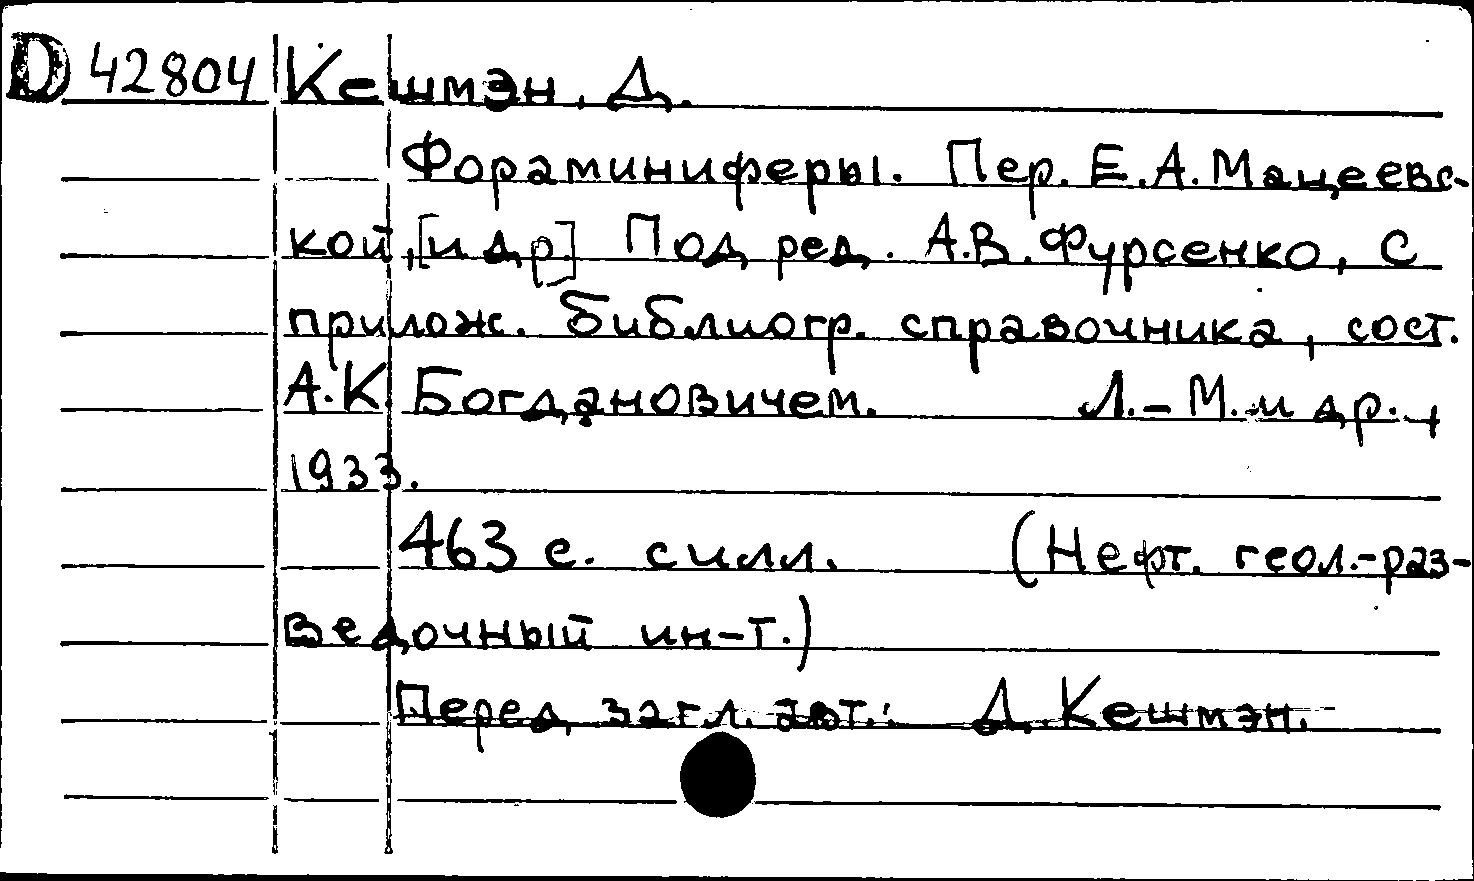 D 42804 Кешмэн, Д.
Фораминиферы. Пер. Е.А. Мацеевс-
кой, [и др.] Под ред. А.В. Фурсенко, С
прилож. библиогр. справочника, сост.
А.К. Богдановичем. Л.-М. и др.,
1933.
463 с. с илл. (Нефт. геол.-раз-
ведочный ин-т.)
Перед загл. авт.: Д. Кешмэн.